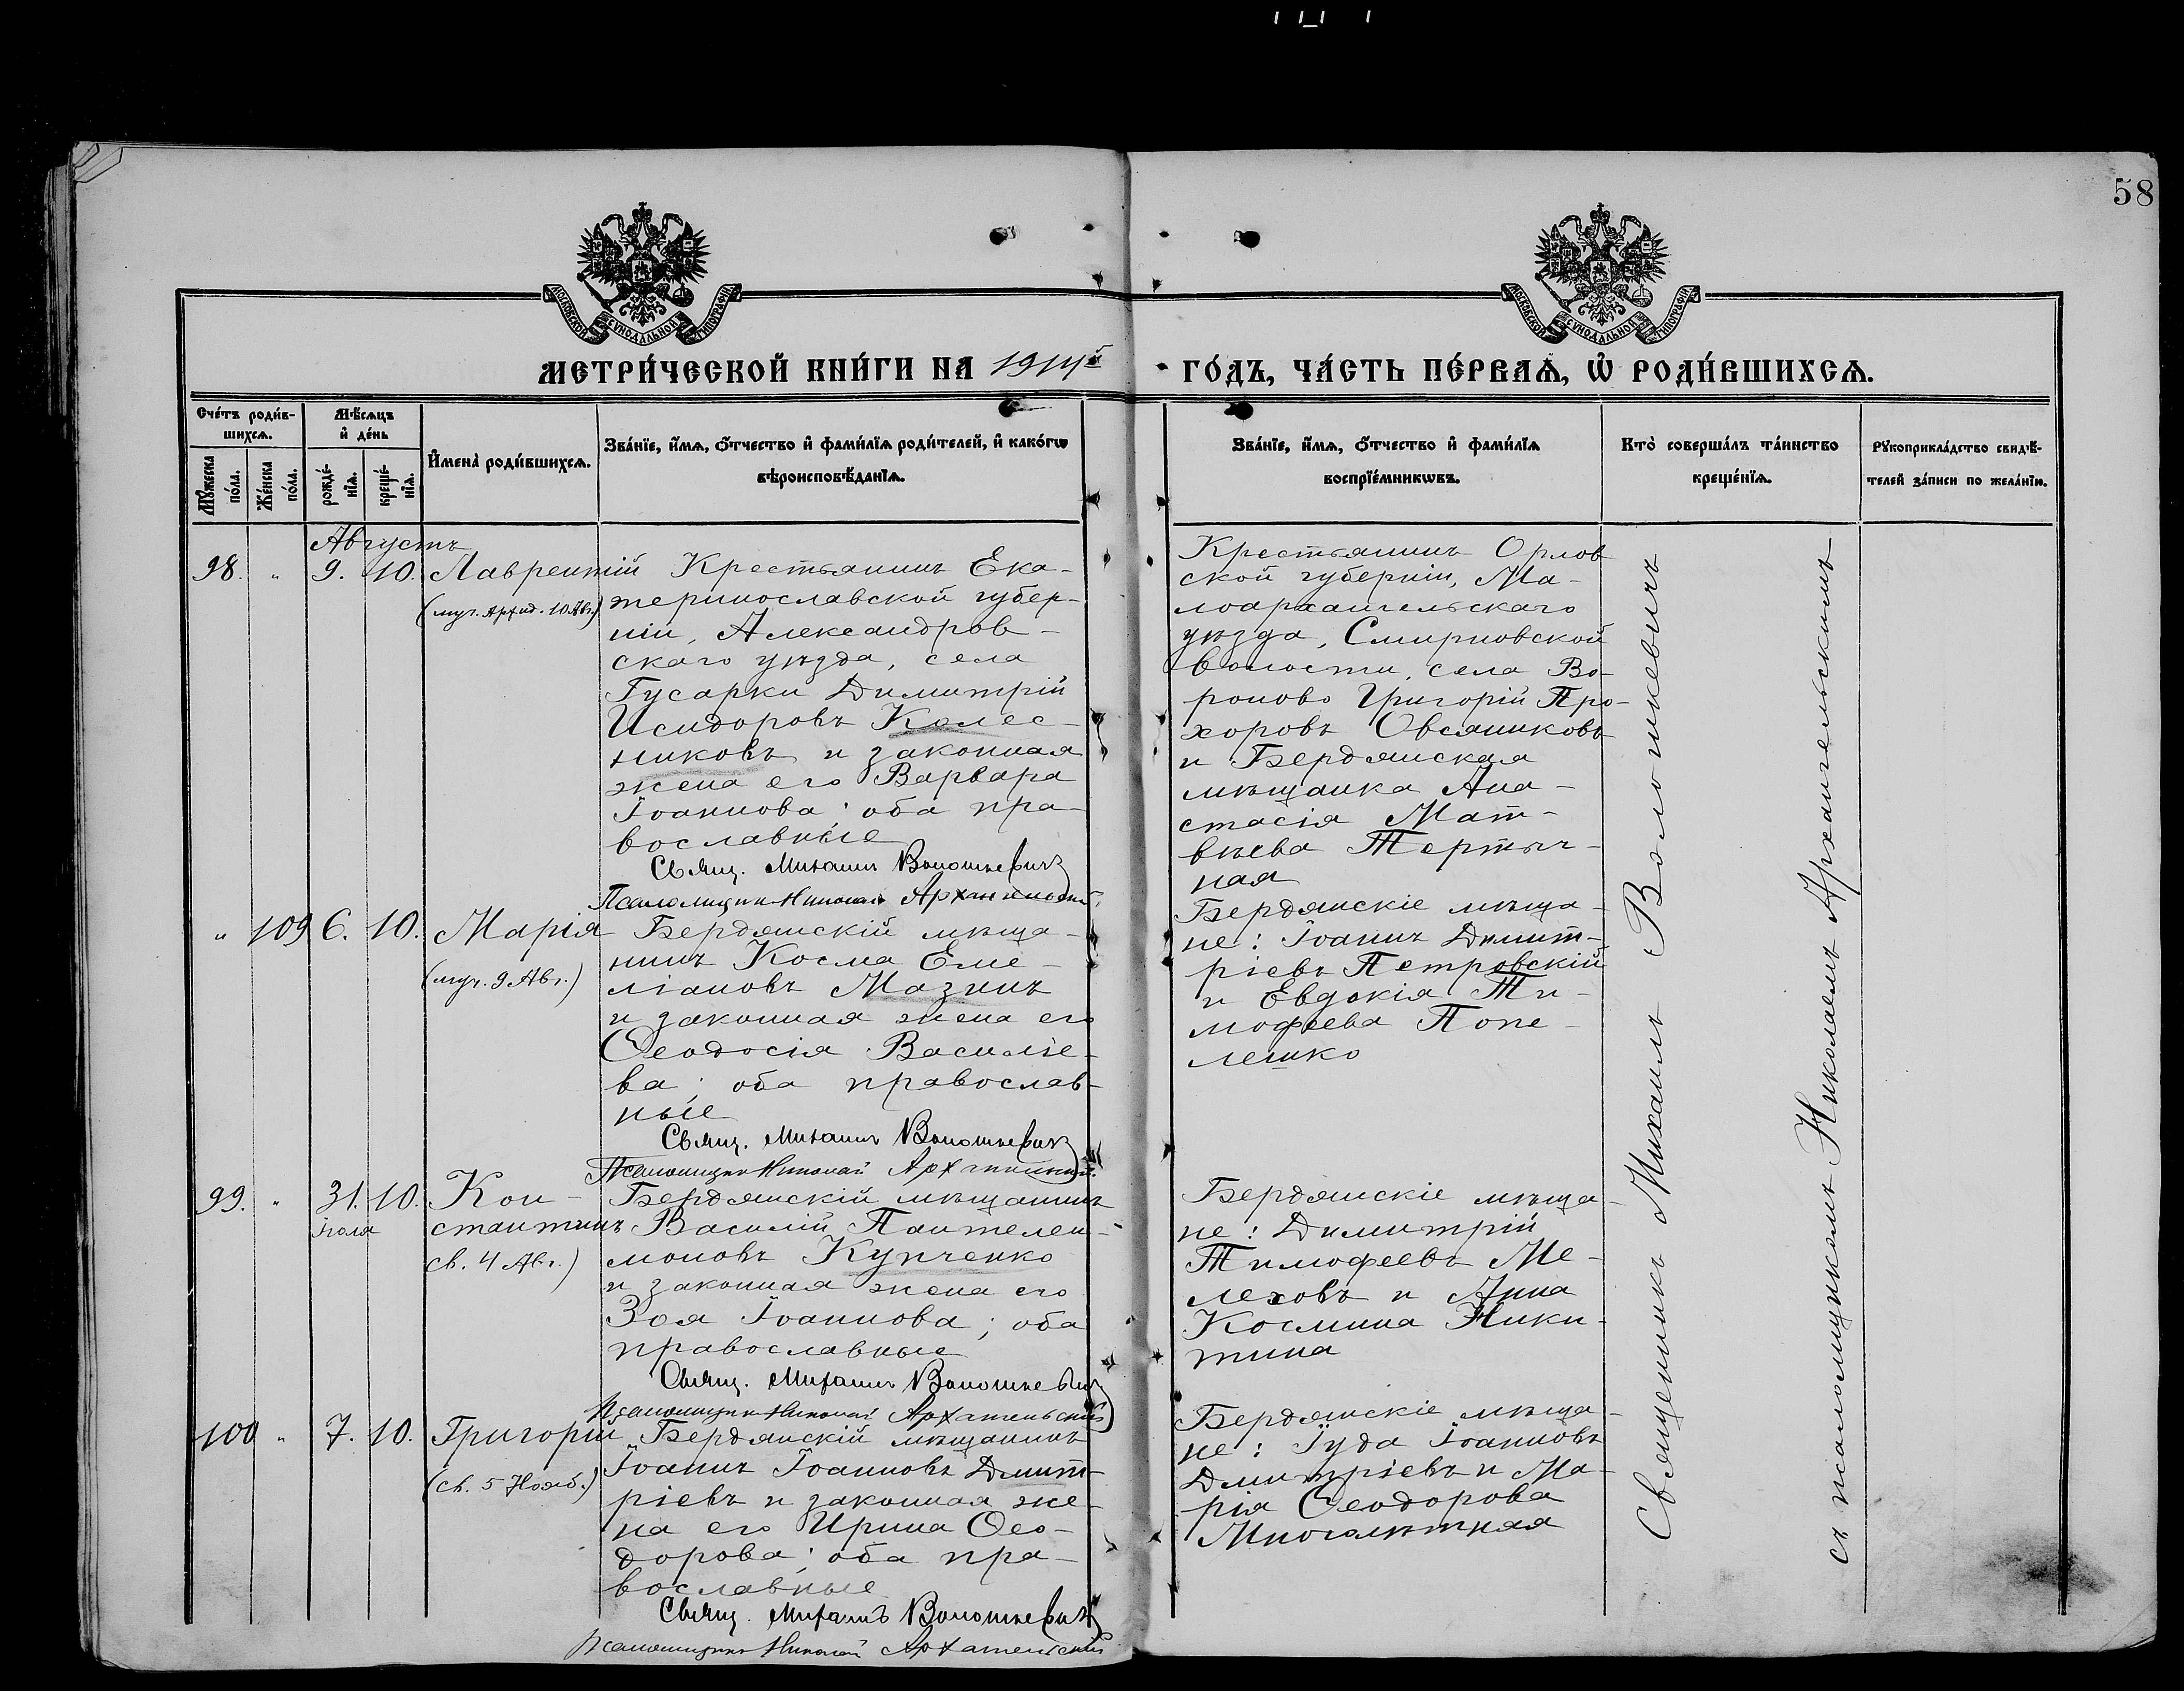 58
МОСКОВСКОЙ СУНОДАЛЬНОЙ ТИПОГРАФІИ
МОСКОВСКОЙ СУНОДАЛЬНОЙ ТИПОГРАФІИ
МЕТРИ́ЧЕСКОЙ КНИ́ГИ НА
ГО́ДЪ, ЧА́СТЬ ПЕ́РВАѦ, Ѡ҆ РОДИ́ВШИХСѦ.
Сче́тъ роди́в-
шихсѧ.
Мꙋ́жеска по́ла.
Же́нска по́ла.
Мѣ́сѧцъ
и҆ де́нь
рожде́-
нїѧ.
креще́-
нїѧ.
И҆мена̀ роди́вшихсѧ.
Зва́нїе, и҆́мѧ, ѻ҆́тчество и҆ фами́лїѧ роди́телей, и҆ како́гѡ
вѣроисповѣ́данїѧ.
Зва́нїе, и҆́мѧ, ѻ҆́тчество и҆ фами́лїѧ
воспрїе́мникѡвъ.
Кто̀ соверша́лъ та́инство
креще́нїѧ.
Рꙋкоприкла́дство свидѣ́-
телей за́писи по жела́нїю.
Августъ
98. " 9. 10. Лаврентій
(муч. Архид. 10 Авг.)
Крестьянинъ Ека-
теринославской губер-
ніи, Александров-
скаго уѣзда, села
Гусарки Димитрій
Исидоровъ Колес-
никовъ и законная
жена его Варвара
Іоаннова; оба пра-
вославные
Свящ. Михаилъ Волошкевичъ
Псаломщикъ Николай Архангельскій
Крестьянинъ Орлов
ской губерніи, Ма-
лоархангельскаго
уѣзда, Смирновской
волости, села Во-
роново Григорій Про-
хоровъ Овсяниковъ
и Бердянская
мѣщанка Ана-
стасія Мат-
вѣева Тертыч-
ная
" 109 6. 10. Марія
(муч. 9 Авг.)
Бердянскій мѣща-
нинъ Косма Еме-
ліановъ Мазинъ
и законная жена его
Ѳеодосія Василіе-
ва; оба православ-
ные
Свящ. Михаилъ Волошкевичъ
Псаломщикъ Николай Архангельскій
Бердянскіе мѣща-
не: Іоаннъ Димит-
ріевъ Петровскій
и Евдокія Ти-
мофеева Попе-
лешко
99. " 31. 10. Кон-
Іюля стантинъ
св. 4 Авг.)
Бердянскій мѣщанинъ
Василій Пантелеи-
моновъ Купченко
и законная жена его
Зоя Іоаннова; оба
православные
Свящ. Михаилъ Волошкевичъ
Псаломщикъ Николай Архангельскій
Бердянскіе мѣща-
не: Димитрій
Тимофеевъ Ме-
леховъ и Анна
Космина Ники-
тина
100 " 7. 10. Григорій
(св. 5 Нояб.)
Бердянскій мѣщанинъ
Іоаннъ Іоанновъ Дмит-
ріевъ и законная же-
на его Ирина Ѳео-
дорова; оба пра-
вославные
Свящ. Михаилъ Волошкевичъ
Псаломщикъ Николай Архангельскій
Бердянскіе мѣща-
не: Іуда Іоанновъ
Дмитріевъ и Ма-
рія Ѳеодорова
Многолѣтняя
Священникъ Михаилъ Волошкевичъ
съ псаломщикомъ Николаемъ Архангельскимъ